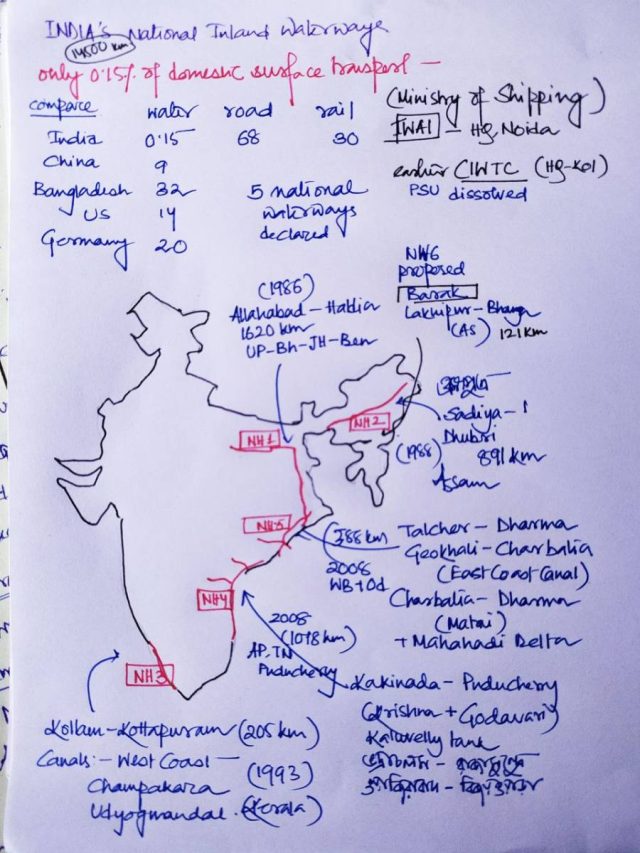 INDIA's National Inland Waterways
14500 km
only 0.15% of domestic surface transport —
compare water road rail
India 0.15 68 30
China 9
Bangladesh 32
US 14
Germany 20
5 national
waterways
declared
(Ministry of Shipping)
IWAI — HQ Noida
earlier CIWTC (HQ-Kol)
PSU dissolved
NW6
proposed
Barak
Lakhipur - Bhanga
(AS) 121 km
(1986)
Allahabad - Haldia
1620 km
UP-Bh-JH-Ben
NH1
NH2
Sadiya -
Dhubri
(1988) 891 km
Assam
NH5
588 km
2008
WB+Od
Talcher - Dharma
Geokhali - Charbatia
(East Coast Canal)
Charbatia - Dharma
(Matai)
+ Mahanadi Delta
NH4
2008
(1078 km)
AP, TN
Puducherry
Kakinada - Puducherry
(Krishna + Godavari)
Kaluvelly tank
NH3
Kollam - Kottapuram (205 km)
Canals:- West Coast —
Champakara (1993)
Udyogmandal (Kerala)